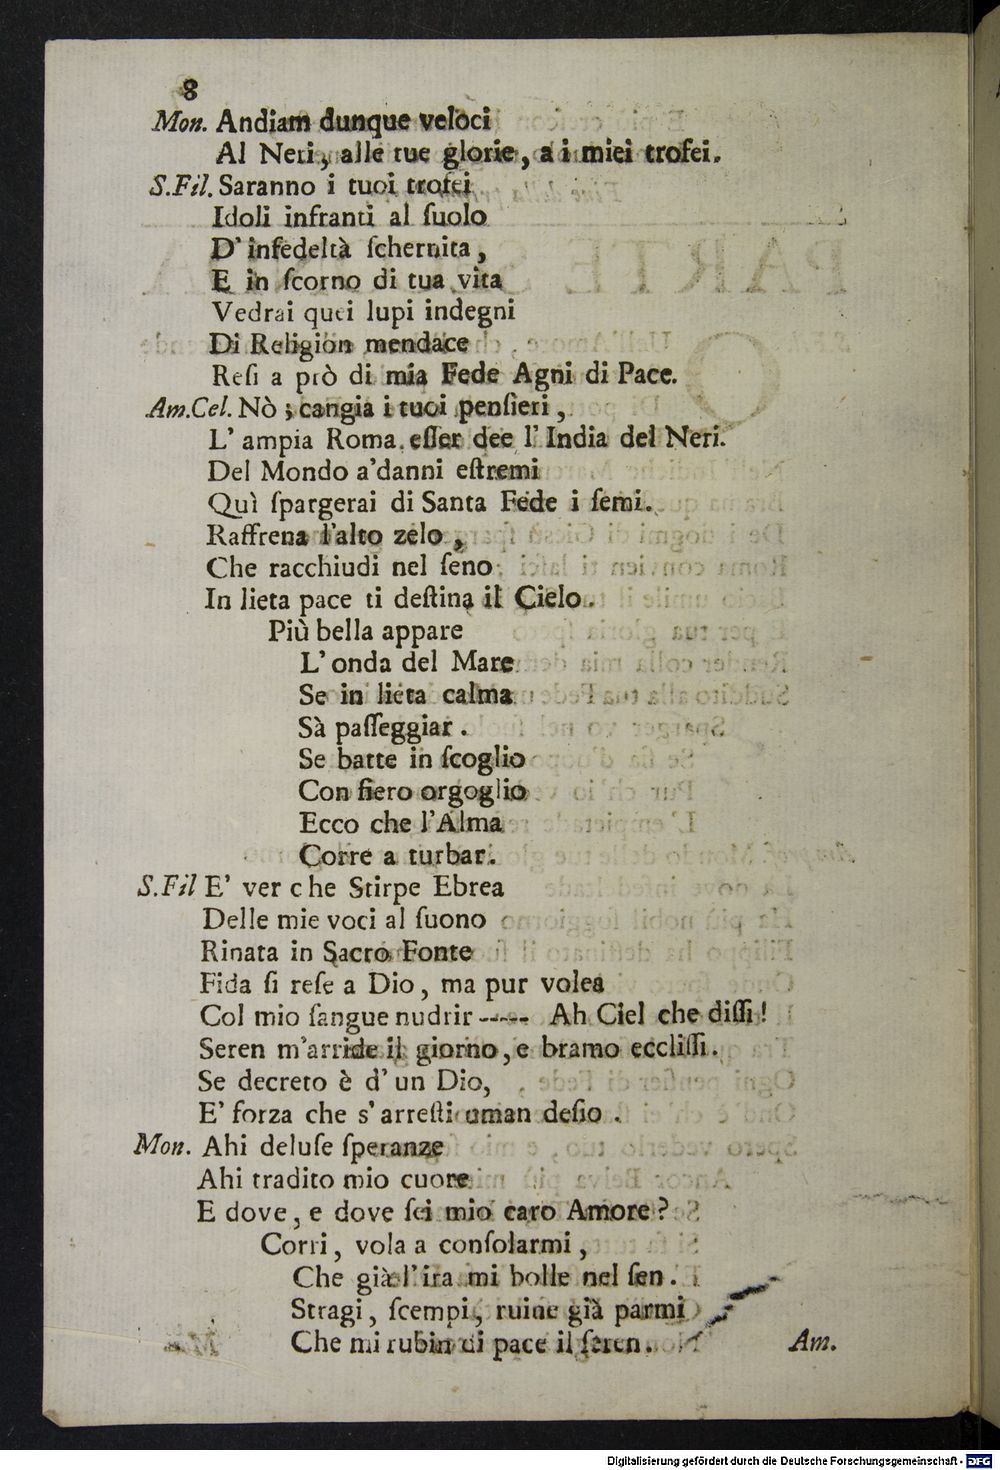 8
Mon. Andiam dunque veloci
Al Neri, alle tue glorie, a i miei trofei.
S.Fil. Saranno i tuoi trofei
Idoli infranti al ſuolo
D' infedeltà ſchernita,
E in ſcorno di tua vita
Vedrai quei lupi indegni
Di Religion mendace
Reſi a prò di mia Fede Agni di Pace.
Am.Cel. Nò; cangia i tuoi penſieri,
L' ampia Roma eſſer dee l' India del Neri.
Del Mondo a' danni eſtremi
Quì ſpargerai di Santa Fede i ſemi.
Raffrena l'alto zelo,
Che racchiudi nel ſeno
In lieta pace ti deſtina il Cielo.
Più bella appare
L' onda del Mare
Se in lieta calma
Sà paſſeggiar.
Se batte in ſcoglio
Con fiero orgoglio
Ecco che l'Alma
Corre a turbar.
S.Fil E' ver che Stirpe Ebrea
Delle mie voci al ſuono
Rinata in Sacro Fonte
Fida ſi reſe a Dio, ma pur volea
Col mio ſangue nudrir ----- Ah Ciel che diſſi!
Seren m'arride il giorno, e bramo eccliſſi.
Se decreto è d' un Dio,
E' forza che s' arreſti uman deſio.
Mon. Ahi deluſe ſperanze
Ahi tradito mio cuore
E dove, e dove ſei mio caro Amore?
Corri, vola a conſolarmi,
Che già l' ira mi bolle nel ſen.
Stragi, ſcempi, ruine già parmi
Che mi rubin di pace il ſeren.
Am.
Digitalisierung gefördert durch die Deutsche Forschungsgemeinschaft - DFG